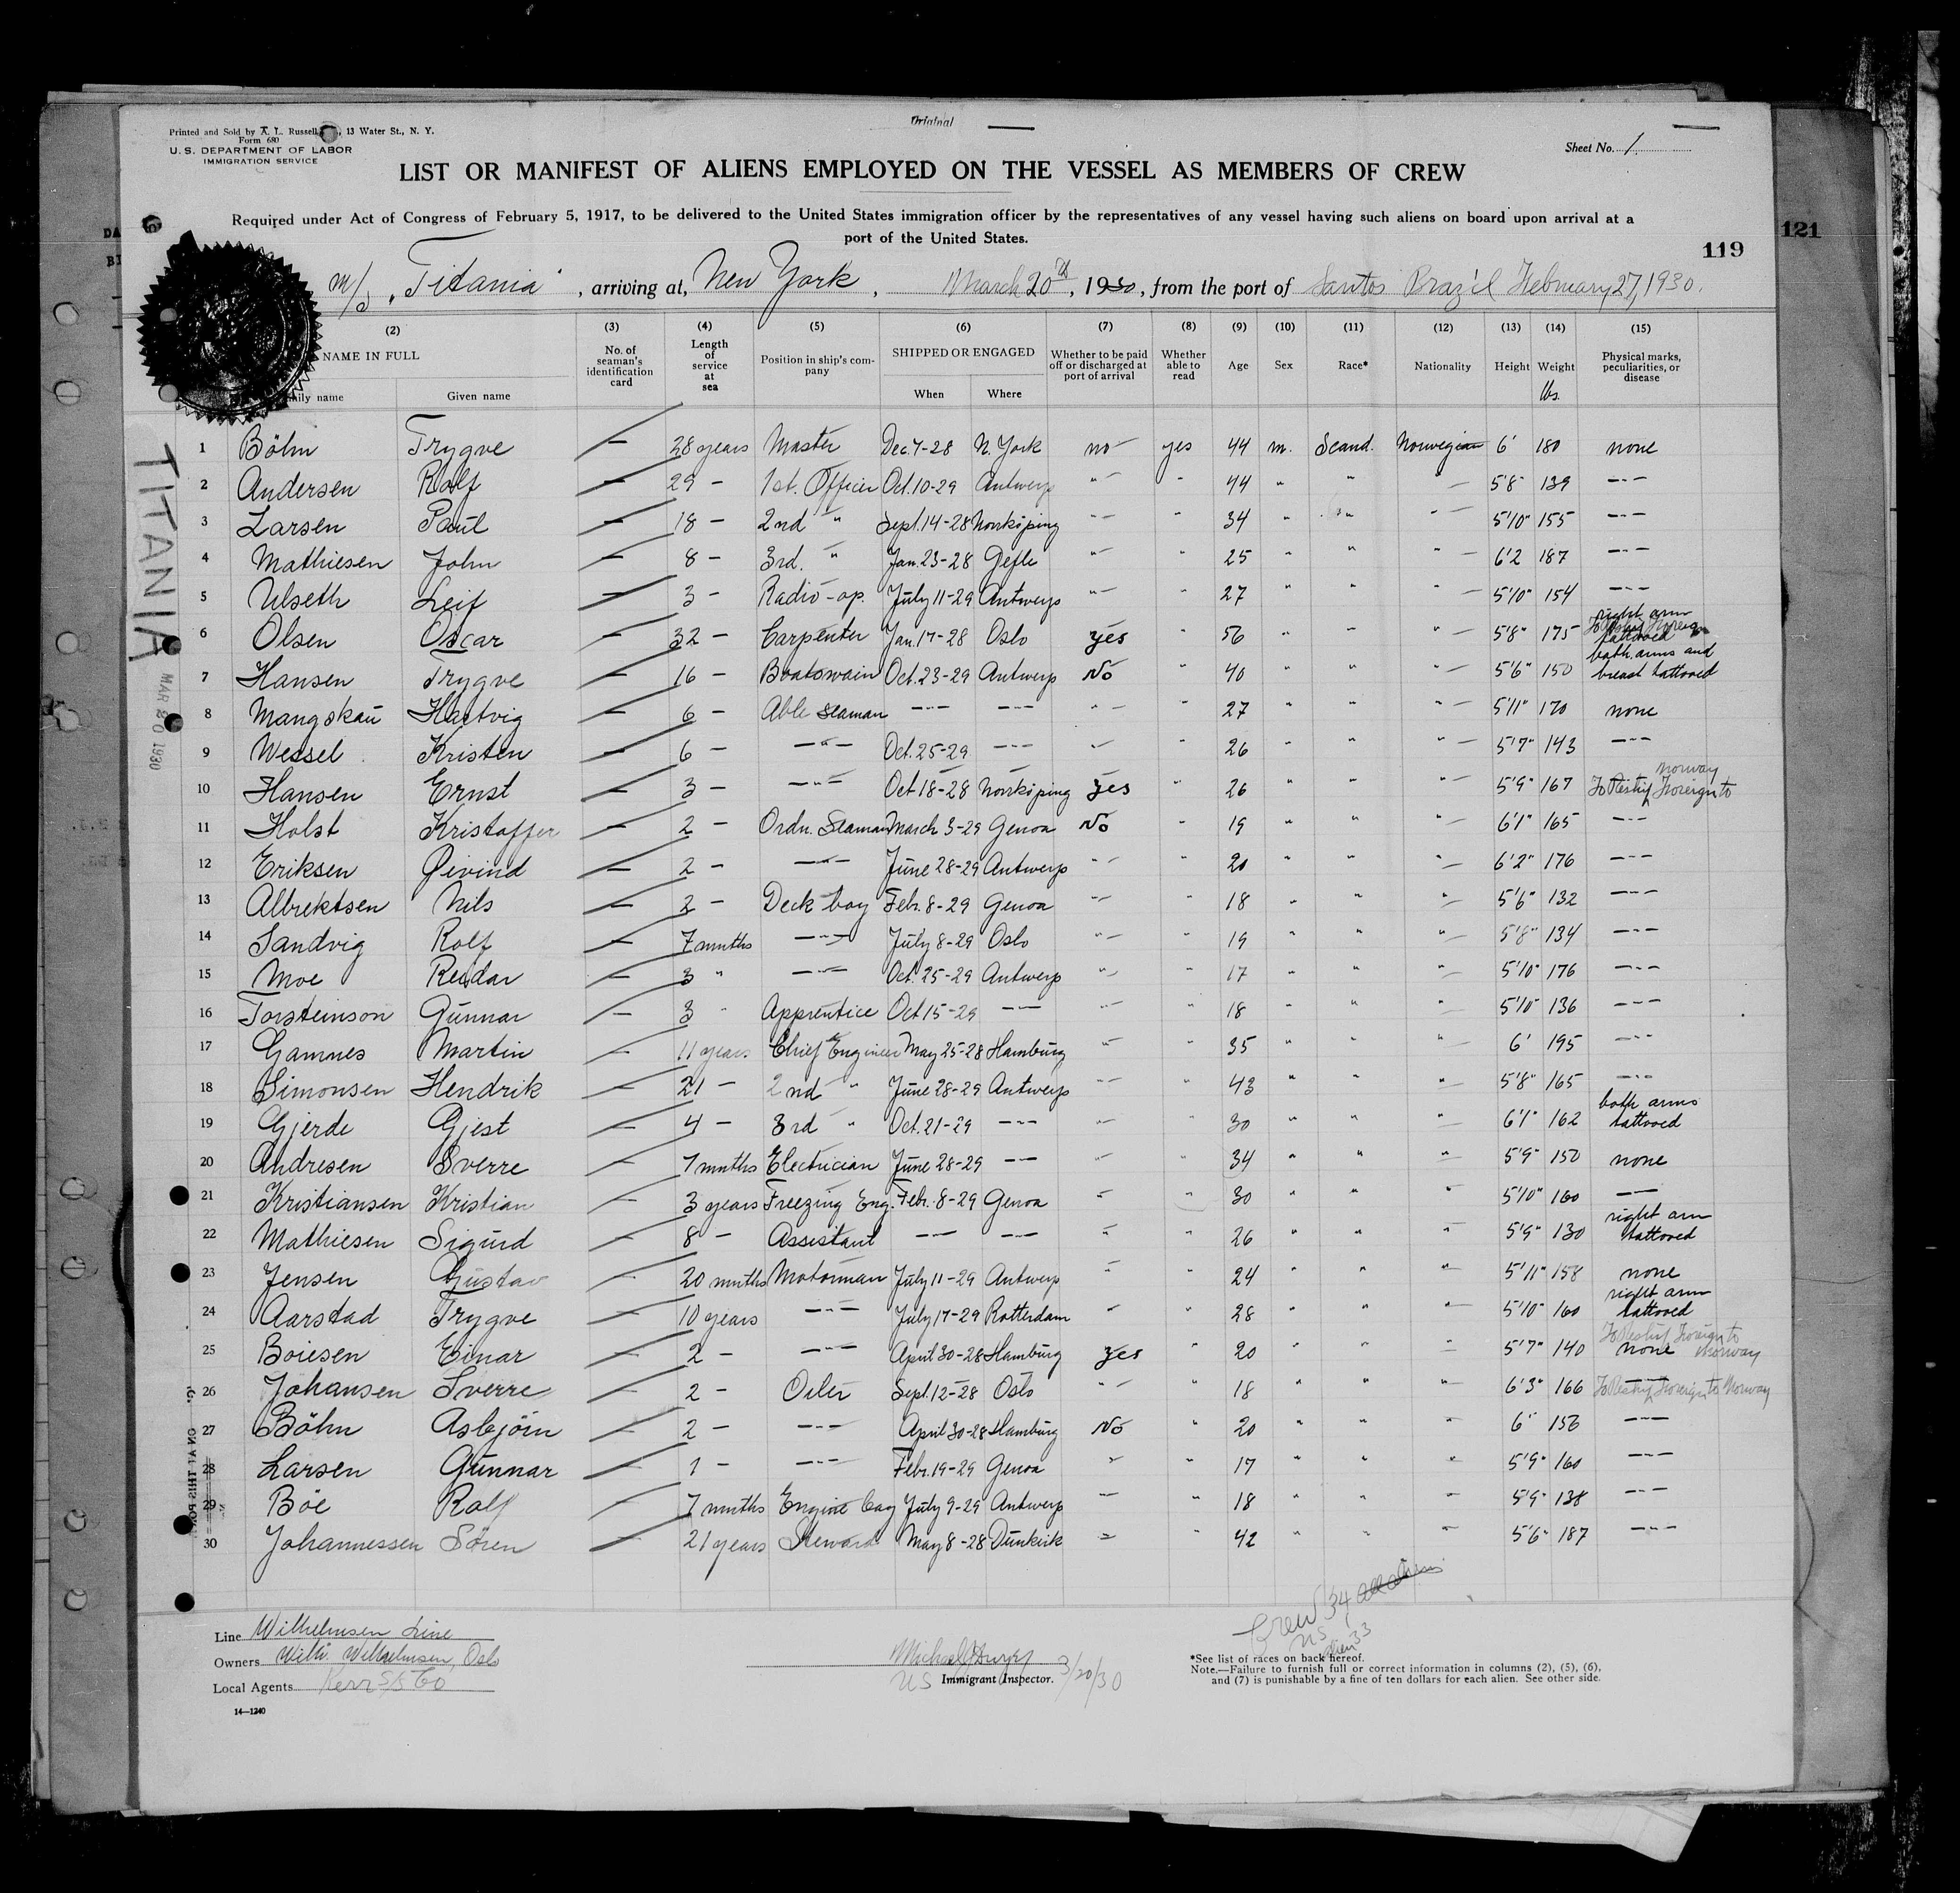 Original
Printed and Sold by A. L. Russell, 13 Water St., N. Y.
Form 680
U. S. DEPARTMENT OF LABOR
IMMIGRATION SERVICE
Sheet No. 1
LIST OR MANIFEST OF ALIENS EMPLOYED ON THE VESSEL AS MEMBERS OF CREW
Required under Act of Congress of February 5, 1917, to be delivered to the United States immigration officer by the representatives of any vessel having such aliens on board upon arrival at a
port of the United States.
119
121
m/s "Titania", arriving at, New York, March 20th, 1930, from the port of Santos Brazil February 27, 1930.
(2) (3) (4) (5) (6) (7) (8) (9) (10) (11) (12) (13) (14) (15)
NAME IN FULL No. of seaman's identification card Length of service at sea Position in ship's company SHIPPED OR ENGAGED Whether to be paid off or discharged at port of arrival Whether able to read Age Sex Race* Nationality Height Weight lbs. Physical marks, peculiarities, or disease
name Given name When Where
1 Böhn Trygve — 28 years Master Dec. 7-28 N. York no yes 44 m. Scand. Norwegian 6' 180 none
2 Andersen Rolf — 29 — 1st. Officer Oct. 10-29 Antwerp " " 44 " " " 5'8" 139 -"-
3 Larsen Paul — 18 — 2nd " Sept. 14-28 Norrköping " " 34 " " " 5'10" 155 -"-
4 Mathiesen John — 8 — 3rd. " Jan. 23-28 Gefle " " 25 " " " 6'2 187 -"-
5 Ulseth Leif — 3 — Radio-op. July 11-29 Antwerp " " 27 " " " 5'10" 154 -"-
6 Olsen Oscar — 32 — Carpenter Jan. 17-28 Oslo yes " 56 " " " 5'8" 175 right arm tattooed
7 Hansen Trygve — 16 — Boatswain Oct. 23-29 Antwerp No " 40 " " " 5'6" 150 both arms and breast tattooed
8 Mangskau Hartvig — 6 — Able Seaman -"- -"- " " 27 " " " 5'11" 170 none
9 Wessel Kristen — 6 — -"- Oct. 25-29 -"- " " 26 " " " 5'7" 143 -"-
10 Hansen Ernst — 3 — -"- Oct 18-28 Norrköping yes " 26 " " " 5'9" 167 To Reship Foreign to Norway
11 Holst Kristoffer — 2 — Ordn. Seaman March 3-29 Genoa No " 19 " " " 6'1" 165 -"-
12 Eriksen Øivind — 2 — -"- June 28-29 Antwerp " " 20 " " " 6'2" 176 -"-
13 Albrektsen Nils — 2 — Deck boy Febr. 8-29 Genoa " " 18 " " " 5'6" 132 -"-
14 Sandvig Rolf — 7 mnths -"- July 8-29 Oslo " " 19 " " " 5'8" 134 -"-
15 Moe Reidar — 3 " -"- Oct. 25-29 Antwerp " " 17 " " " 5'10" 176 -"-
16 Torsteinson Gunnar — 3 " Apprentice Oct 15-29 -"- " " 18 " " " 5'10" 136 -"-
17 Gamnes Martin — 11 years Chief Engineer May 25-28 Hamburg " " 35 " " " 6' 195 -"-
18 Simonsen Hendrik — 21 — 2nd " June 28-29 Antwerp " " 43 " " " 5'8" 165 -"-
19 Gjerde Gjest — 4 — 3rd " Oct. 21-29 -"- " " 30 " " " 6'1" 162 both arms tattooed
20 Andresen Sverre — 7 mnths Electrician June 28-29 -"- " " 34 " " " 5'9" 150 none
21 Kristiansen Kristian — 3 years Freezing Eng. Febr. 8-29 Genoa " " 30 " " " 5'10" 160 -"-
22 Mathiesen Sigurd — 8 — Assistant -"- -"- " " 26 " " " 5'9" 130 right arm tattooed
23 Jensen Gustav — 20 mnths Motorman July 11-29 Antwerp " " 24 " " " 5'11" 158 none
24 Aarstad Trygve — 10 years -"- July 17-29 Rotterdam " " 28 " " " 5'10" 160 right arm tattooed
25 Boiesen Einar — 2 — -"- April 30-28 Hamburg yes " 20 " " " 5'7" 140 none To Reship Foreign to Norway
26 Johansen Sverre — 2 — Oiler Sept. 12-28 Oslo " " 18 " " " 6'3" 166 To Reship Foreign to Norway
27 Böhn Asbjörn — 2 — -"- April 30-28 Hamburg No " 20 " " " 6' 156 -"-
28 Larsen Gunnar — 1 — -"- Febr. 19-29 Genoa " " 17 " " " 5'9" 160 -"-
29 Böe Ralf — 7 mnths Engine boy July 9-29 Antwerp " " 18 " " " 5'9" 138 -"-
30 Johannessen Sören — 21 years Steward May 8-28 Dunkirk " " 42 " " " 5'6" 187 -"-
TITANIA
MAR 20 1930
Crew 34
US
alien 33
Line Wilhelmsen Line
Owners Wilh. Wilhelmsen, Oslo
Local Agents Kerr S/S Co
14—1240
Michael
US Immigrant Inspector. 3/20/30
*See list of races on back hereof.
Note.—Failure to furnish full or correct information in columns (2), (5), (6),
and (7) is punishable by a fine of ten dollars for each alien. See other side.